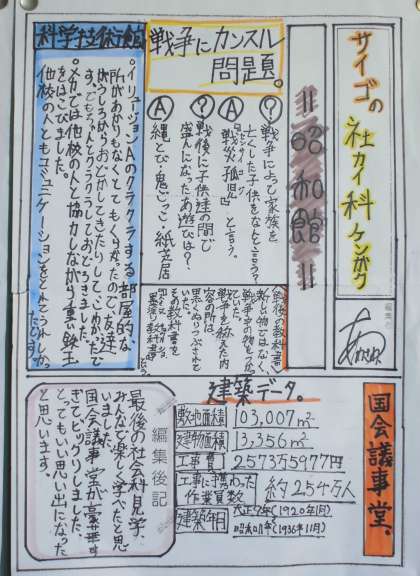 サイゴの
社カイ科ケンガク
編集者
昭和館
戦争にカンスル
問題。
？戦争によって家族を
亡くした子供をなんと言う？
Ａ「戦災孤児」と言う。
？戦後に子供達の間で
盛んになったあ遊びは？
Ａ縄とび・鬼ごっこ・紙芝居
戦後の教科書
新しい物ではなく、
戦争中の物をつかっ
ていた。
戦争を教えた内
容の所は、
黒くぬりつぶされた
その教科書を
科学技術館
イリュージョンAのクラクラする部屋的な
所があかりもなくとてもくらかったので、友達
がうしろからおどかしてきたりしてこわかったで
メカでは他校の人と協力しながら重い鉄玉
をはこびました。
他校の人ともコミュニケーションをとれてうれしかっ
たです。
国会議事堂。
建築データ。
敷地面積 103,007m²
建物面積 13,356m²
工事費 2573万5977円
工事に携わった
作業員数 約254万人
建築年月 大正9年(1920年1月)
昭和11年(1936年11月)
編集後記
最後の社会科見学、
みんなで楽しく学べたと思
いました。
国会議事堂が豪華す
ぎてビックリしました。
とってもいい思い出になった
と思います。